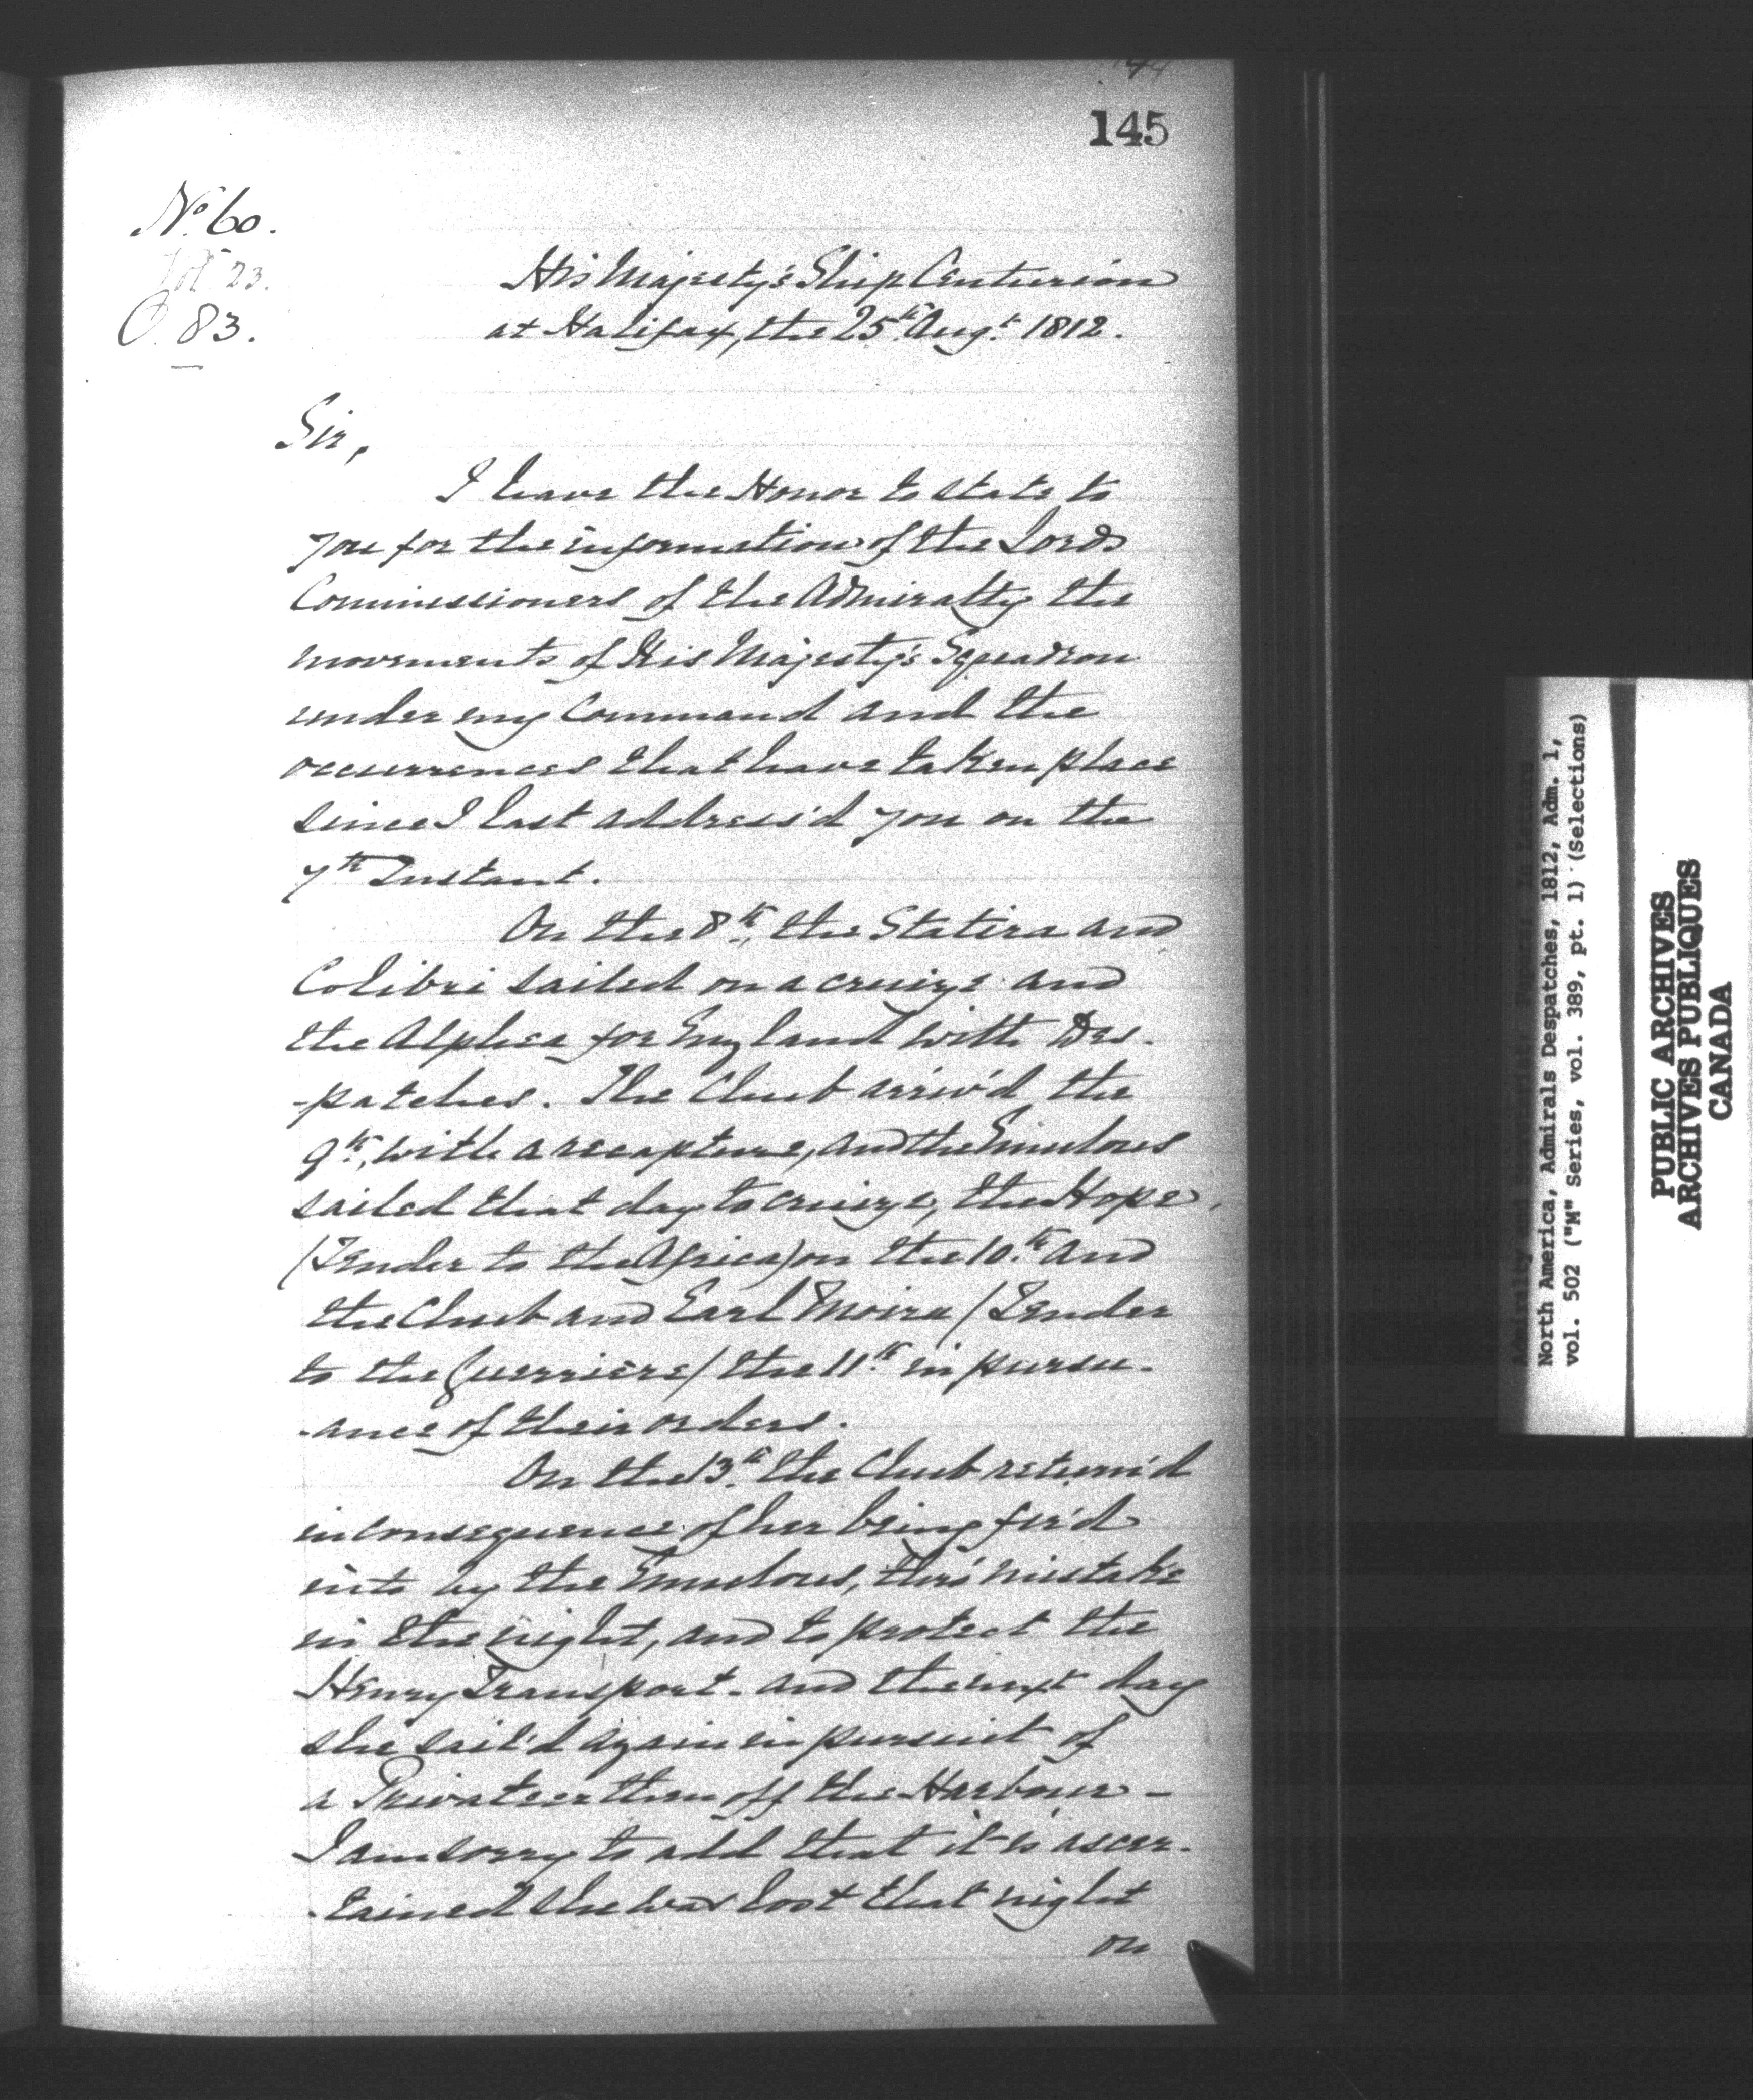 145
No. 60.
O. 83.
His Majesty's Ship Centurion
at Halifax, the 25th Augt. 1812.
Sir,
I have the Honor to state to
you for the information of the Lords
Commissioners of the Admiralty the
movements of His Majesty's Squadron
under my Command and the
occurrences that have taken place
since I last address'd you on the
7th Instant.
On the 8th, the Statira and
Colibri sailed on a cruize and
the Alphea for England with Des-
-patches. The Chub arriv'd the
9th, with a recapture, and the Emulous
sailed that day to cruize, the Hope,
(Tender to the Africa) on the 10th and
the Chub and Earl Moira (Tender
to the Guerriere) the 11th in pursu-
-ance of their orders.
On the 13th the Chub return'd
in consequence of her being fir'd
into by the Emulous, thro' mistake
in the night, and to protect the
Henry Transport - and the next day
she sail'd again in pursuit of
a Privateer then off the Harbour -
I am sorry to add that it is ascer-
-tained she was lost that night
on
Admiralty and Secretariat: Papers: In Letters
North America, Admirals Despatches, 1812, Adm. 1,
vol. 502 ("M" Series, vol. 389, pt. 1) (Selections)
PUBLIC ARCHIVES
ARCHIVES PUBLIQUES
CANADA